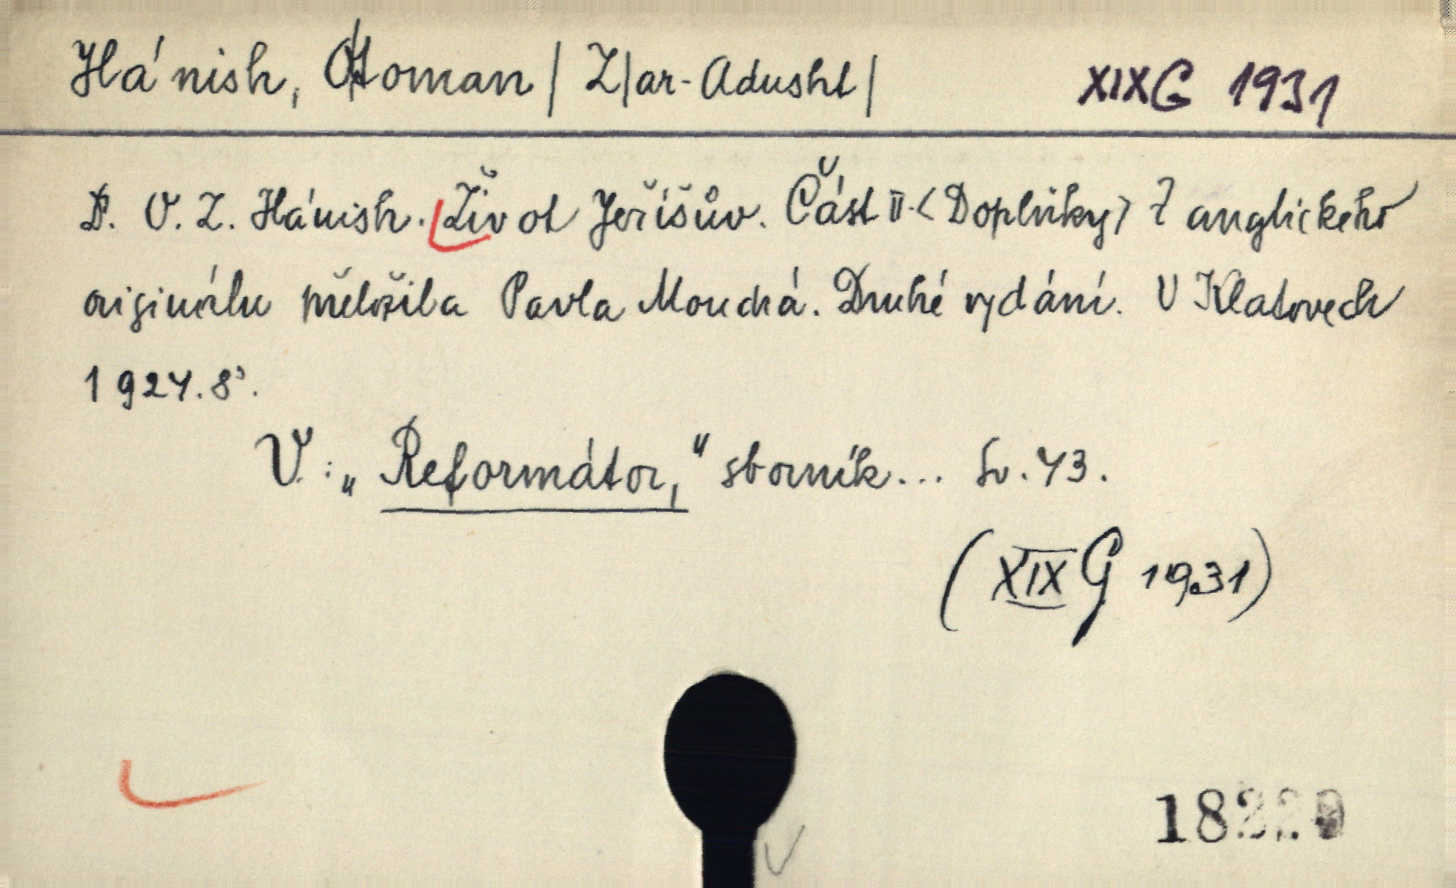 Hánish, Otoman / Z/ar-Adusht/ XIXG 1931
D. O. Z. Hánish. Život Ježíšův. Část II. <Doplňky> Z anglického
originálu přeložila Pavla Moudrá. Druhé vydání. V Klatovech
1927. 8°.
V: „Reformátor," sborník... Sv. 73.
(XIX G 1931)